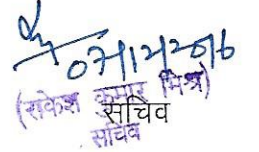 07/12/2016
(राकेश कुमार मिश्र)
सचिव
सचिव